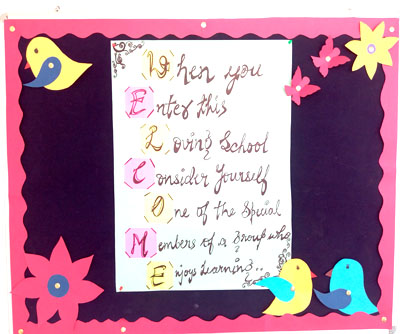 When you
Enter this
Loving School
Consider Yourself
One of the Special
Members of a Group who
Enjoys Learning..